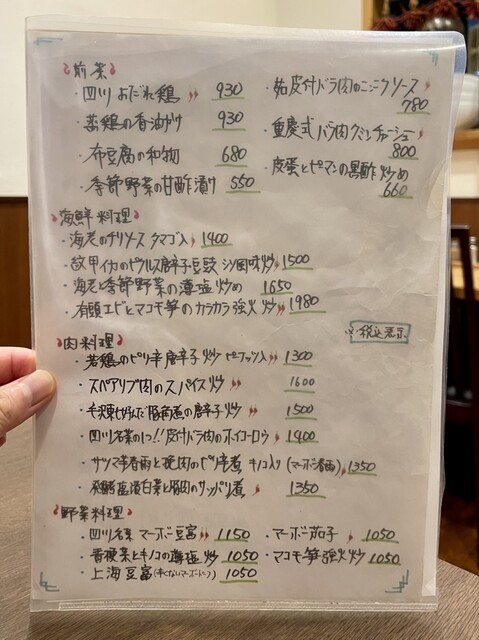 前菜
・四川 よだれ鶏 930
・蒸鶏の香油がけ 930
・布豆腐の和物 680
・季節野菜の甘酢漬け 550
・皮付バラ肉のニンニクソース
780
・重慶式バラ肉クミンチャーシュー
800
・皮蛋とピーマンの黒酢炒め
660
海鮮料理
・海老のチリソース タマゴ入 1400
・紋甲イカのピクルス唐辛子豆豉 炒 1500
・海老と季節野菜の薄塩炒め 1650
・有頭エビとマコモ筍のカラカラ強火炒 1980
※税込表示
肉料理
・若鶏のピリ辛唐辛子炒 ピーナッツ入 1300
・スペアリブ肉のスパイス炒 1600
・毛沢東が好んだ豚角煮の唐辛子炒 1500
・四川名菜の1つ!!皮付バラ肉のホイコーロウ 1400
・サツマ芋春雨と挽肉のピリ辛煮 キノコ入り(マーボー春雨) 1350
・発酵塩漬白菜と豚肉のサッパリ煮 1350
野菜料理
・四川名菜 マーボ豆富 1150
・青梗菜とキノコの薄塩炒 1050
・上海豆富(辛くないマーボードーフ) 1050
・マーボー茄子 1050
・マコモ筍強火炒 1050